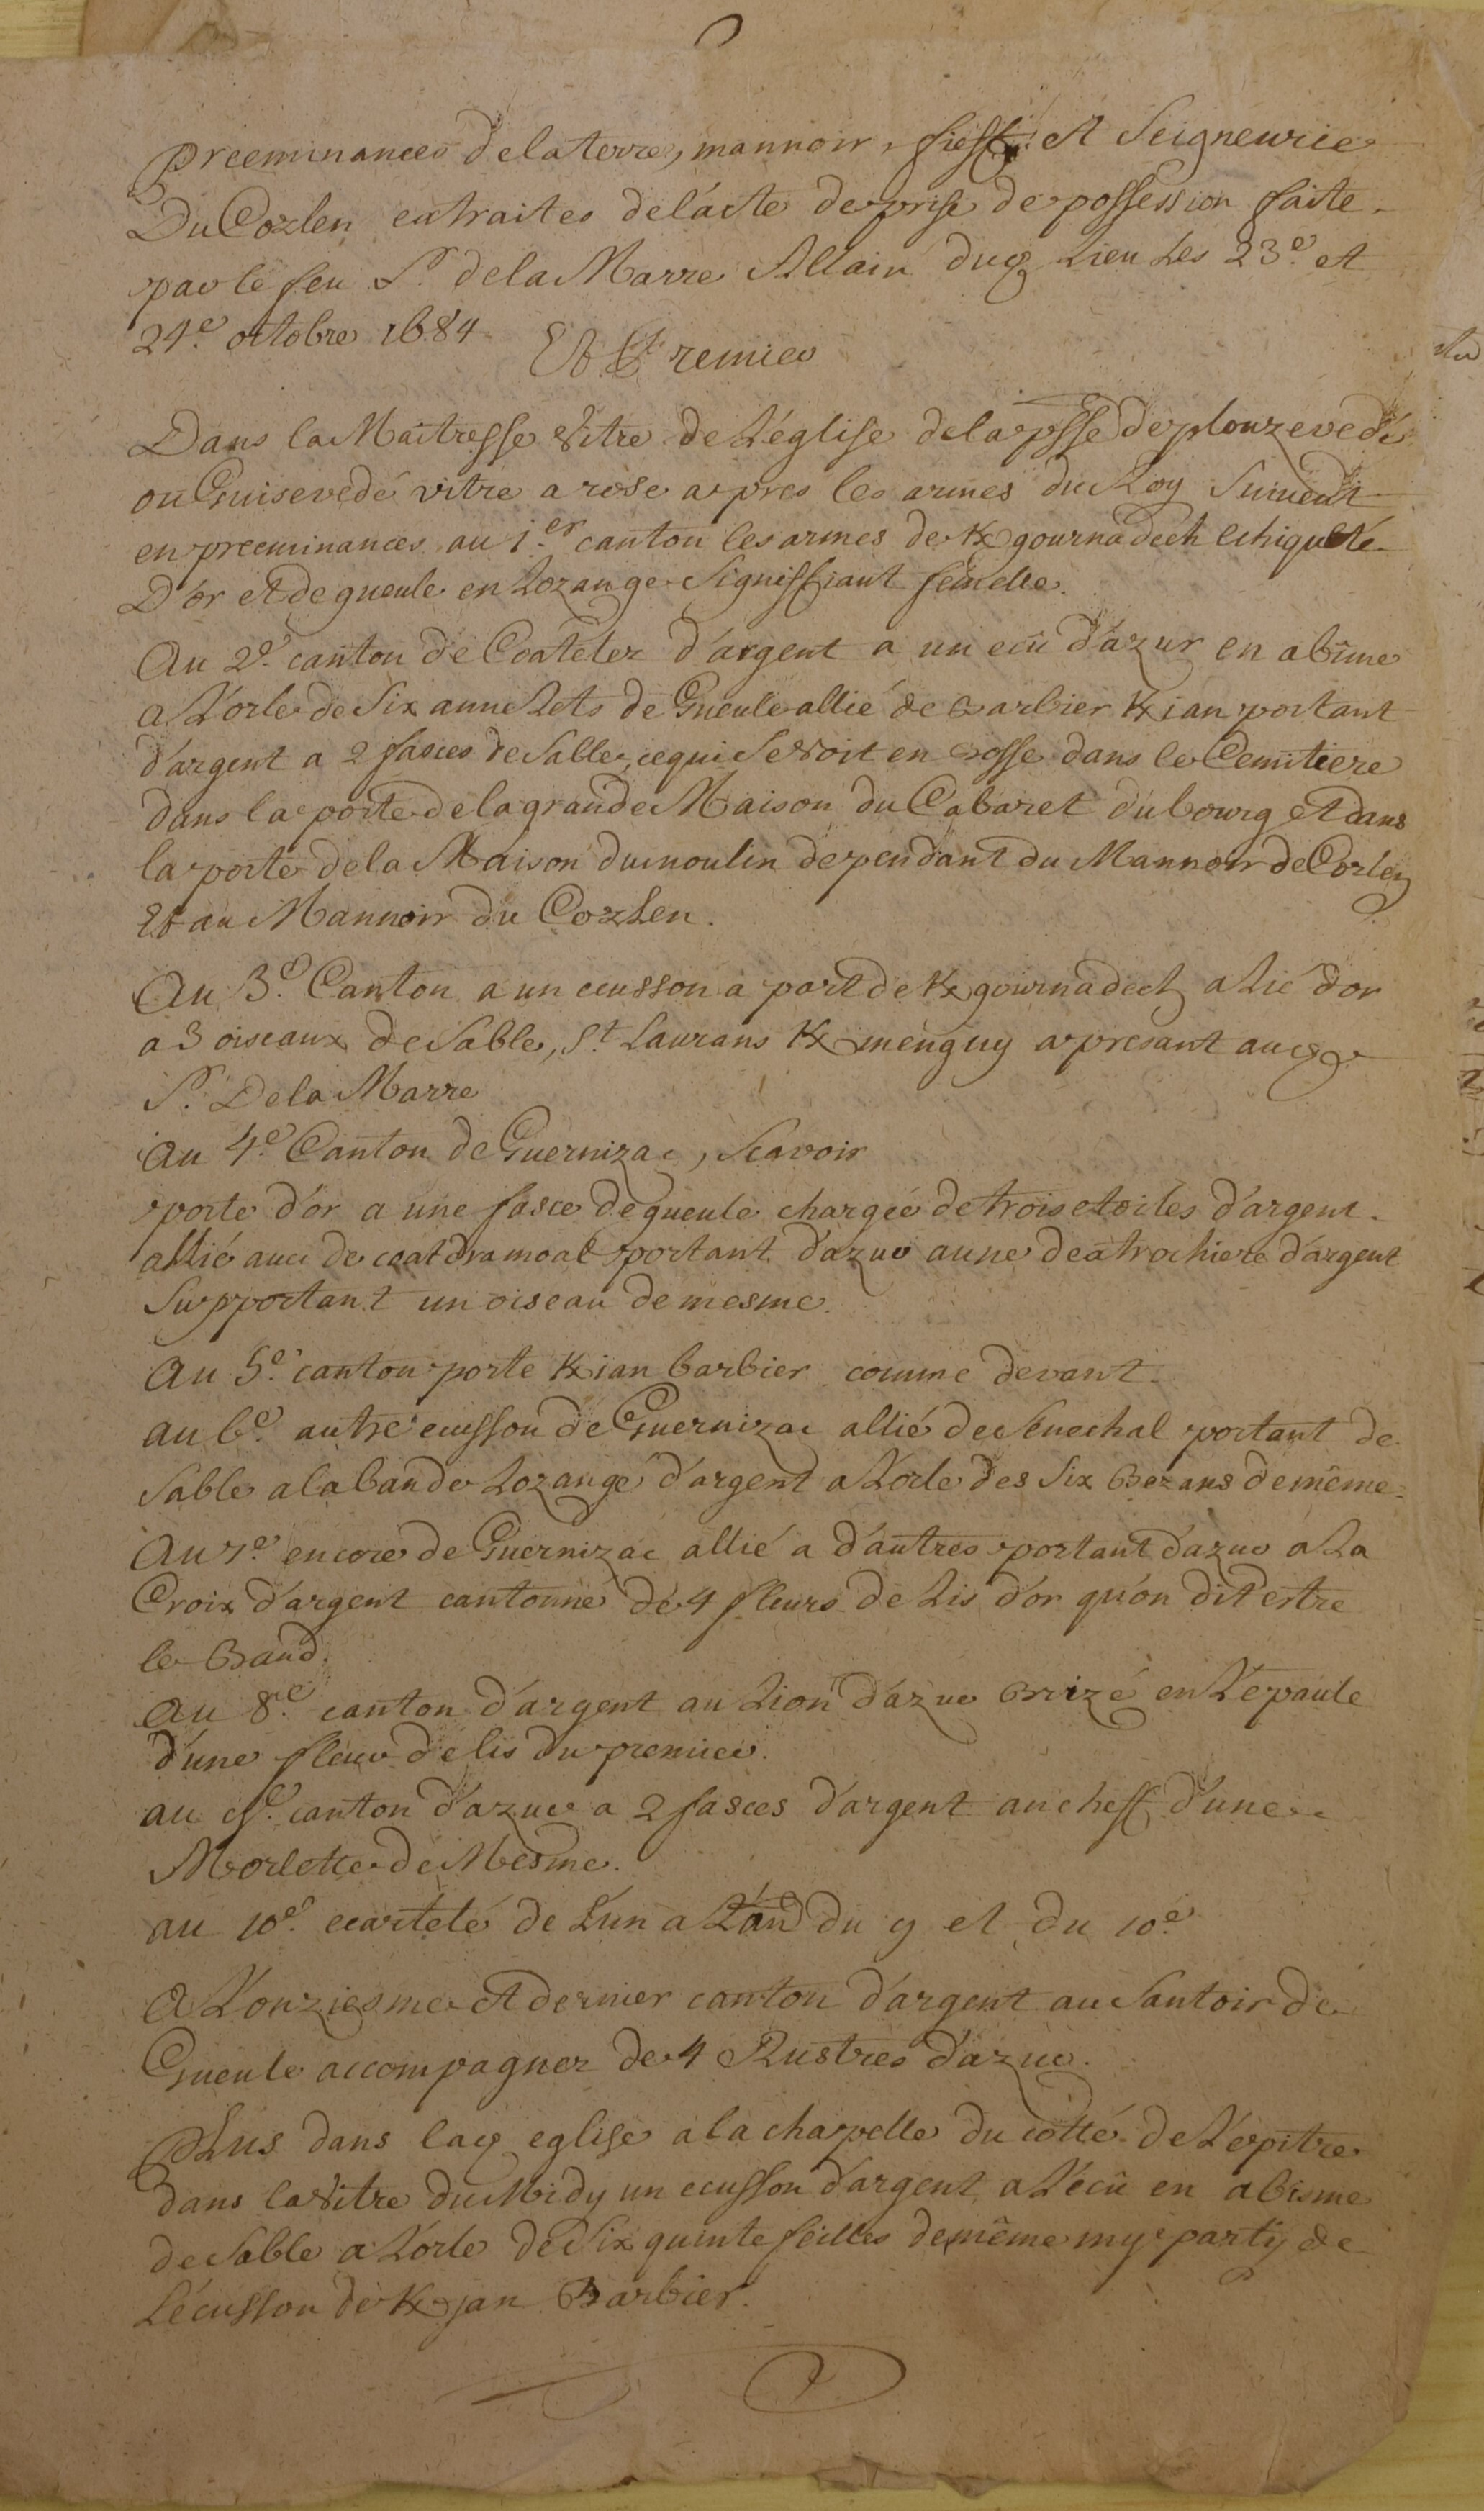 preeminances de la terre, mannoir, fieff et Seigneurie
Du Cozlen extraites de l'acte de prise de possession faite
par le feu Sr. de la Marre Allain dud. Lieu Les 23e. et
24e. octobre 1684
Et Premier
Dans la Maîtresse Vitre de L'église de la psse de plouzevedé
ou Guisevedé vitre a rose apres les armes du Roy Suivent
en preeminances au 1er. canton les armes de K gournadech Echiqueté
D'or et de gueule en Lozange Signiffiant femelle.
Au 2e. canton de Coatelez d'argent a un ecu d'azur en abîme
a L'orle de Six annelets de Gueule allié de Barbier K jan portant
d'argent a 2 fasces de Sable, ce qui Se Voit en Bosse dans le Cemitiere
dans la porte de la grande Maison du Cabaret du bourg et dans
la porte de la Maison du moulin dependant du Mannoir de Cozlen
Et au Mannoir du CozLen.
Au 3e. Canton a un ecusson a part de K gournadech a Lié d'or
a 3 oiseaux de Sable, St. Laurans K menguy a presant aud.
Sr. De la Marre
Au 4e. Canton de Guernizac, Scavoir
porte d'or a une fasce de gueule chargée de trois etoiles d'argent
allié avec de coatdramoal portant d'azur a une deatrochiere d'argent
Supportant un oiseau de mesme.
Au 5e. canton porte K jan barbier comme devant
au 6e. autre ecusson de Guernizac allié de Senechal portant de
Sable a la bande Lozangé d'argent a L'orle des Six Bezans de même
Au 7e. encore de Guernizac allié a d'autres portant d'azur a La
Croix d'argent cantonné de 4 fleurs de Lis d'or qu'on dit estre
le Baud.
au 8e. canton d'argent au Lion d'azur Brizé en L'epaule
d'une fleur de lis du premier.
au 9e. canton d'azur a 2 fasces d'argent au cheff d'une
Morlette de Mesme.
au 10e. ecartelé de L'un a L'au du 9 et du 10e
A L'onziesme et dernier canton d'argent au Santoir de
Gueule accompagnez de 4 Rustres d'azur.
PLus dans lad. eglise a la chapelle du cotté de L'epitre
dans la Vitre du Midy un ecusson d'argent a L'écu en abisme
de Sable a L'orle de Six quinte feilles de même my party de
L'écusson de K jan Barbier.